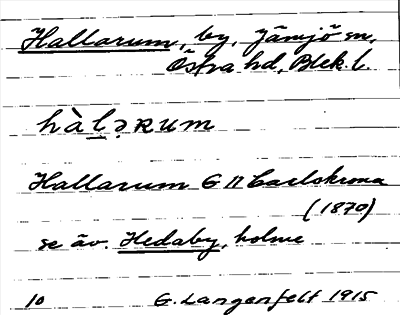 Hallarum, by, Jämjö sn,
Östra hd, Blek. l.
hàlə̣ʀum
Hallarum G II Carlskrona
(1870)
se äv. Hedaby, holme
10 G. Langenfelt 1915